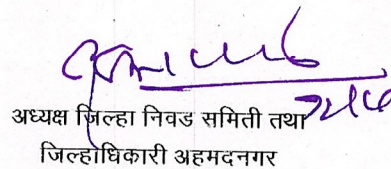 अध्यक्ष जिल्हा निवड समिती तथा
जिल्हाधिकारी अहमदनगर